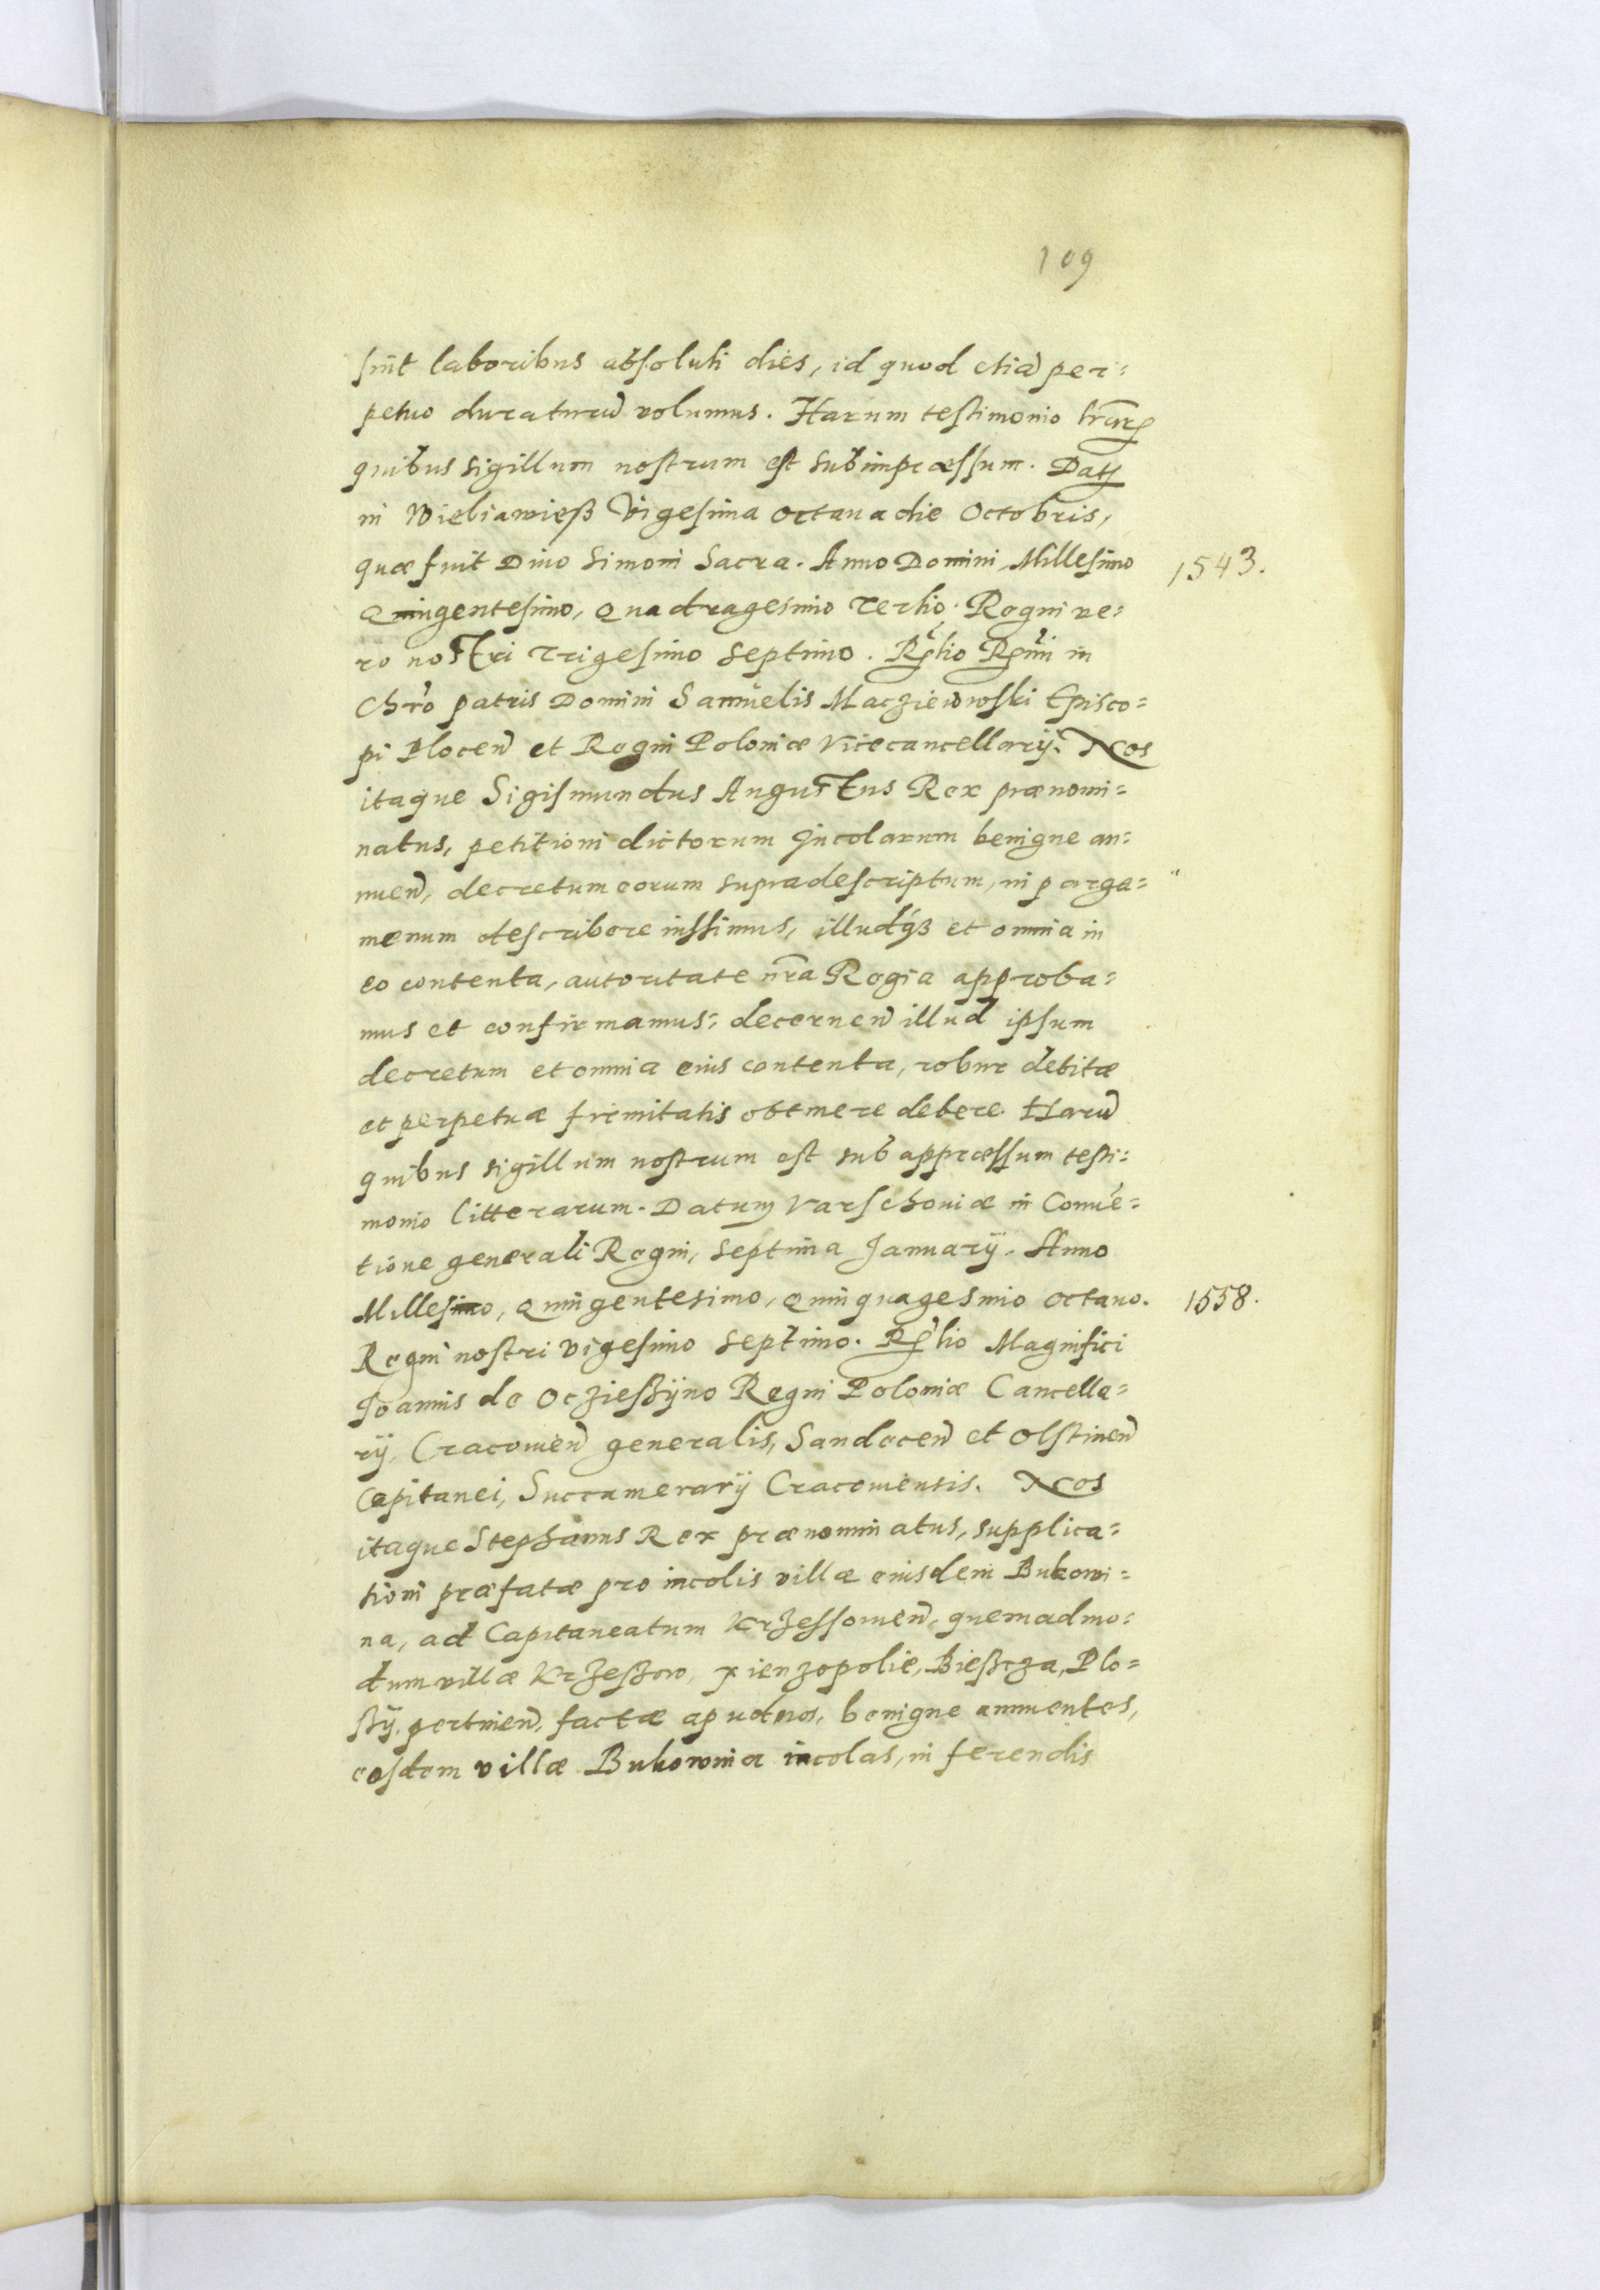 109
sint laboribus absoluti dies, id quod etiã per=
petuo duraturũ volumus. Harum testimonio lr̃arꝝ
quibus sigillum nostrum est subimpræssum. Datꝭ
in Wieliawieß Vigesima octaua die Octobris,
quæ fuit Diuo Simoni Sacra. Anno Domini Millesimo 1543.
Quingentesimo, Quadragesimo Tertio. Regni ve=
ro nostri Trigesimo Septimo. Rꝓtio Rꝓmi in
Chr̃o patris Domini Samuelis Macziewowski Episco=
pi Plocen̄ et Regni Poloniæ Vicecancellarij. Nos
itaque Sigismundus Augustus Rex prænomi=
natus, petitioni dictorum Incolarum benigne an=
nuen̄, decretum eorum supradescriptum, in parga=
menum describere iussimus, illudqȝ et omnia in
eo contenta, autoritate nr̃a Regia approba=
mus et confirmamus; decernen̄ illud ipsum
decretum et omnia eius contenta, robur debitæ
et perpetuæ firmitatis obtinere debere. Harũ
quibus sigillum nostrum est subappræssum testi=
monio litterarum. Datum Varschouiæ in Conuē=
tione generali Regni, Septima Januarij. Anno
Millesimo, Quingentesimo, Quinquagesimo octauo. 1558.
Regni nostri vigesimo Septimo. Rꝓtio Magnifici
Joannis de Ocziesßyno Regni Poloniæ Cancella=
rij, Cracouien̄ generalis, Sandecen̄ et Olstinen̄
Capitanei, Succamerarij Cracouiensis. Nos
itaque Stephanus Rex prænominatus, supplica=
tioni præfatæ pro incolis villæ eiusdem Bukowi=
na, ad Capitaneatum Krzessouien̄, quemadmo=
dum villæ Krzeßow, Xienzopolie, Bießcza, Plo=
ßij, pertinen̄, factæ apud nos, benigne annuentes,
eosdem villæ Bukowina incolas, in ferendis